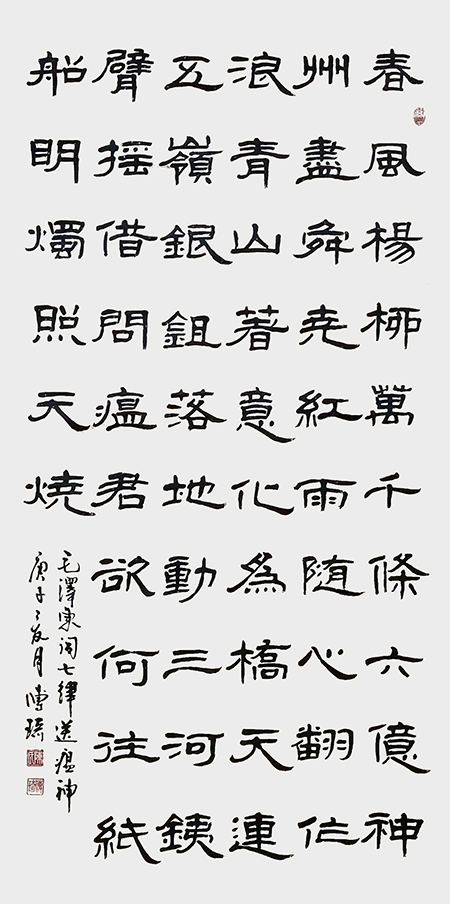 春風楊柳萬千條六億神
州盡舜堯紅雨隨心翻作
浪青山著意化為橋天連
五嶺銀鉏落地動三河銕
臂摇借問瘟君欲何往紙
船明燭照天燒
毛澤東詞七律送瘟神
庚子之夏月